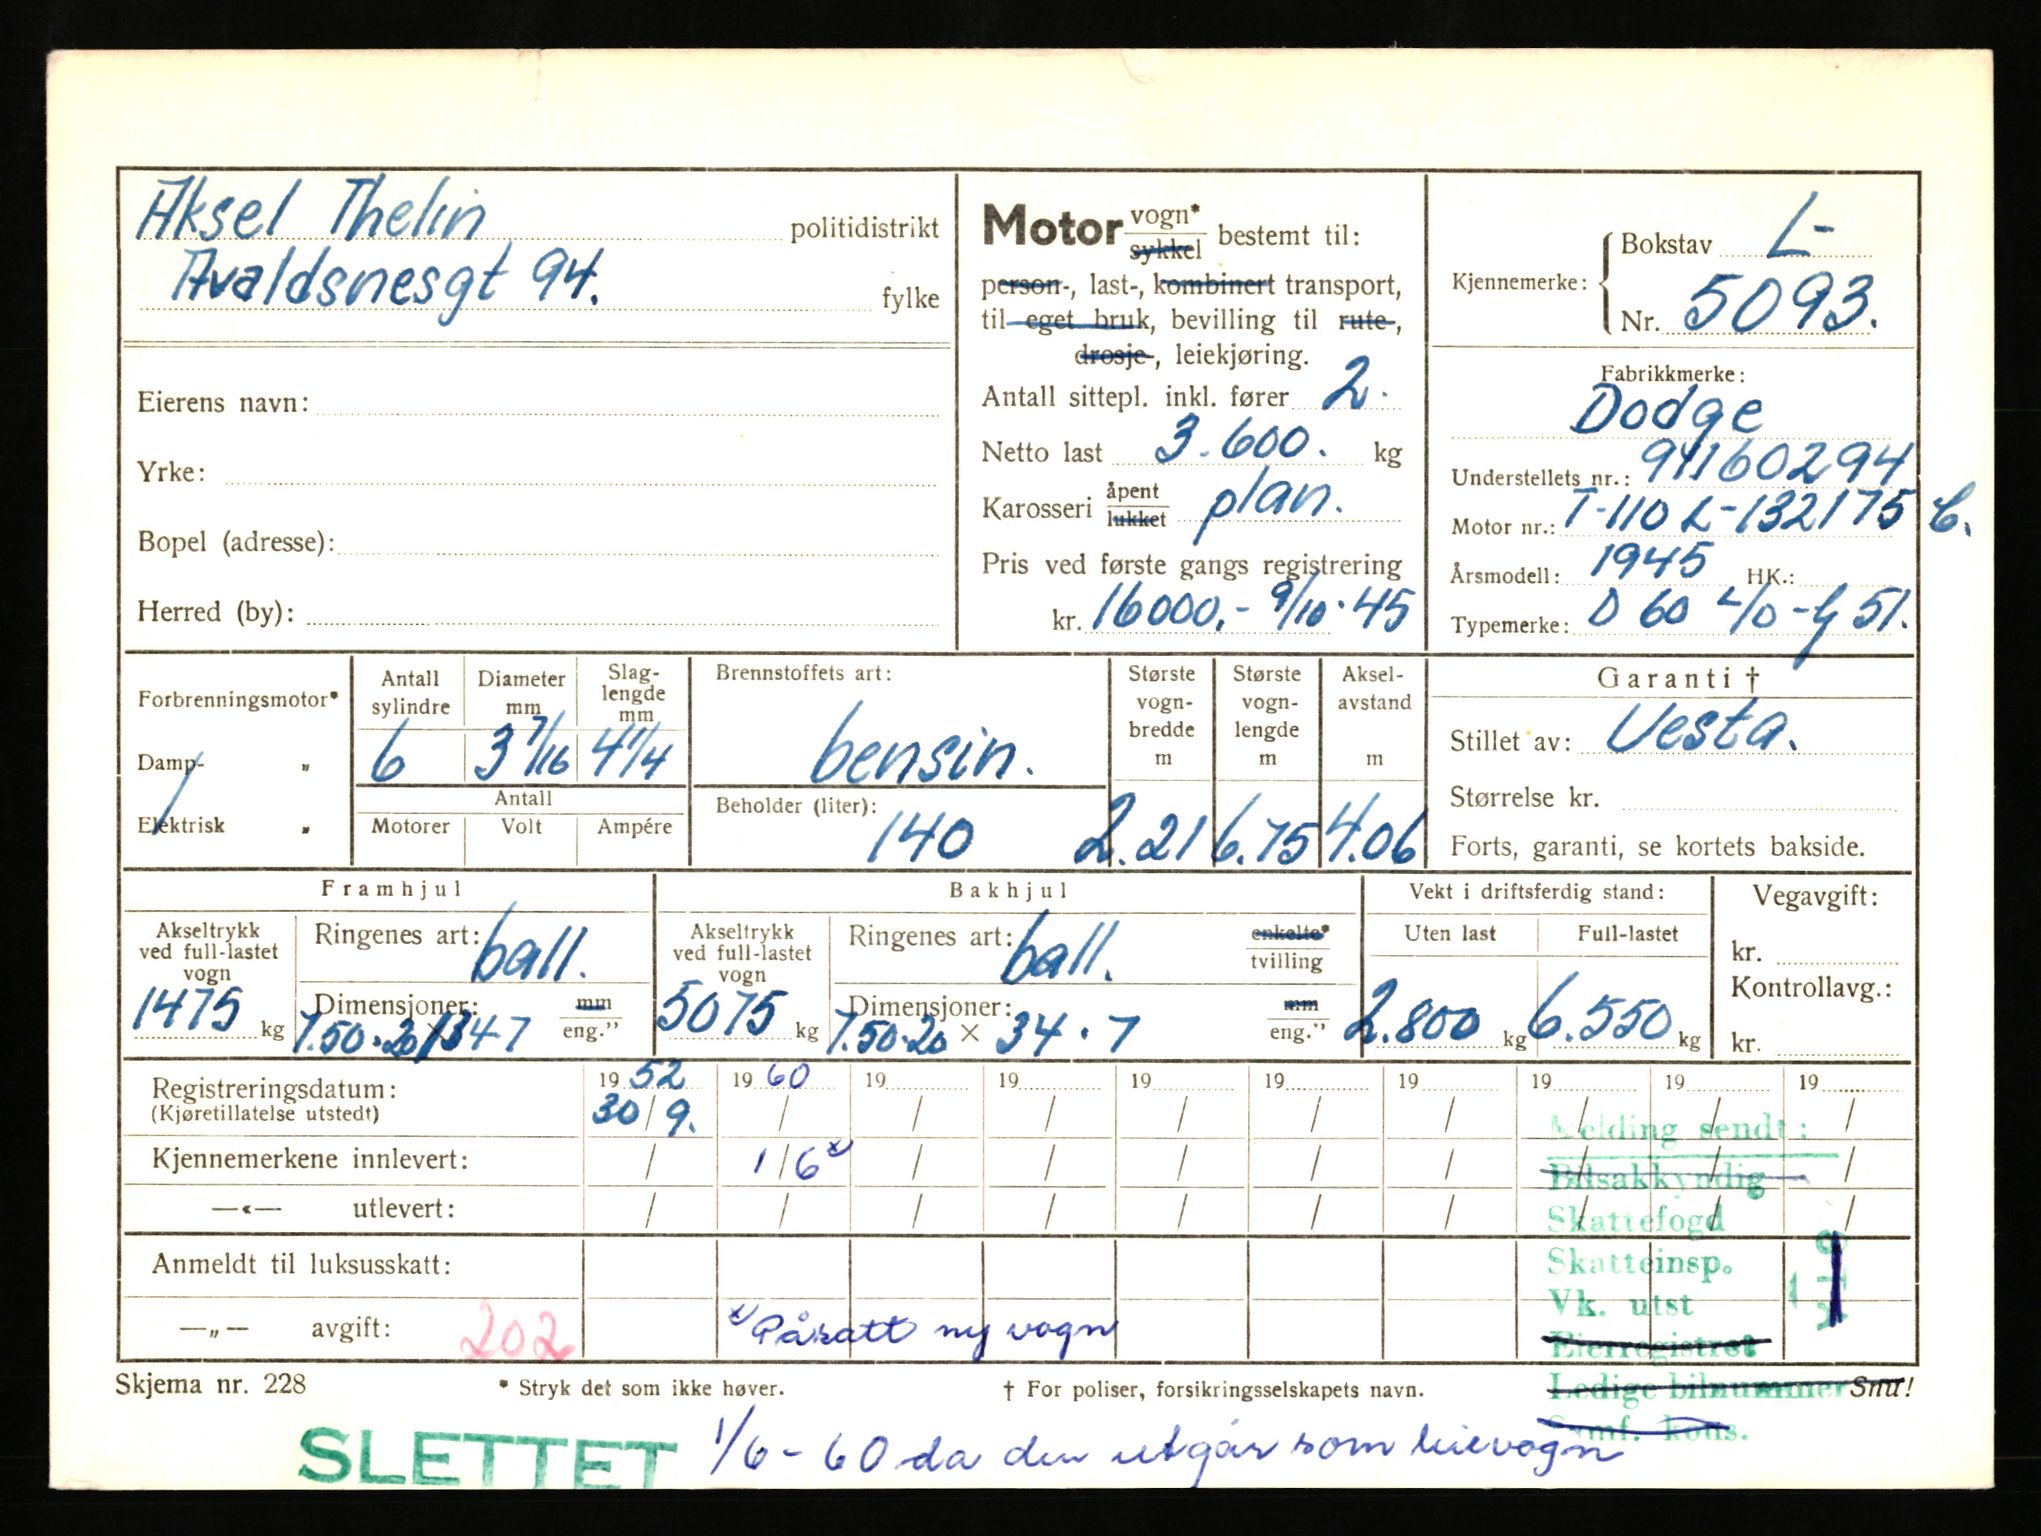 Aksel Thelin politidistrikt
Avaldsnesgt 94. fylke
Eierens navn:
Yrke:
Bopel (adresse):
Herred (by):
Motor vogn* sykkel bestemt til:
person-, last-, kombinert transport,
til eget bruk, bevilling til rute-,
drosje-, leiekjøring.
Antall sittepl. inkl. fører 2.
Netto last 3.600. kg
Karosseri åpent lukket plan.
Pris ved første gangs registrering
kr. 16000.- 9/10.45
Kjennemerke: Bokstav L-
Nr. 5093.
Fabrikkmerke:
Dodge
Understellets nr.: 94160294
Motor nr.: T-110 L-132175 C.
Årsmodell: 1945 HK.:
Typemerke: D 60 L/D - G 51.
Forbrenningsmotor*
Damp- „
Elektrisk „
Antall sylindre
6
Diameter mm
3 7/16
Slag-lengde mm
4 1/4
Antall
Motorer Volt Ampére
Brennstoffets art:
bensin.
Beholder (liter):
140
Største vogn-bredde m
2.21
Største vogn-lengde m
6.75
Aksel-avstand m
4.06
Garanti †
Stillet av: Vesta.
Størrelse kr.
Forts, garanti, se kortets bakside.
Framhjul
Akseltrykk ved full-lastet vogn
1475 kg
Ringenes art: ball.
Dimensjoner: mm eng.”
7.50.20 × 34.7
Bakhjul
Akseltrykk ved full-lastet vogn
5075 kg
Ringenes art: ball. enkelte* tvilling
Dimensjoner: mm eng.”
7.50.20 × 34.7
Vekt i driftsferdig stand:
Uten last Full-lastet
2.800 kg 6.550 kg
Vegavgift:
kr.
Kontrollavg.:
kr.
Registreringsdatum: 19 52 19 60 19 19 19 19 19 19 19 19
(Kjøretillatelse utstedt) 30/9. / / / / / / / / /
Kjennemerkene innlevert: / 1/6 x) / / / / / / / /
—«— utlevert: / / / / / / / / / /
Anmeldt til luksusskatt:
—„— avgift: 202 x) Påsatt ny vogn
Melding sendt:
Bilsakkyndig
Skattefogd
Skatteinsp.
Vk. utst
Eierregistret
Ledige bilnummer
Samf. kons.
Skjema nr. 228 * Stryk det som ikke høver. † For poliser, forsikringsselskapets navn. Snu!
SLETTET 1/6-60 da den utgår som leievogn